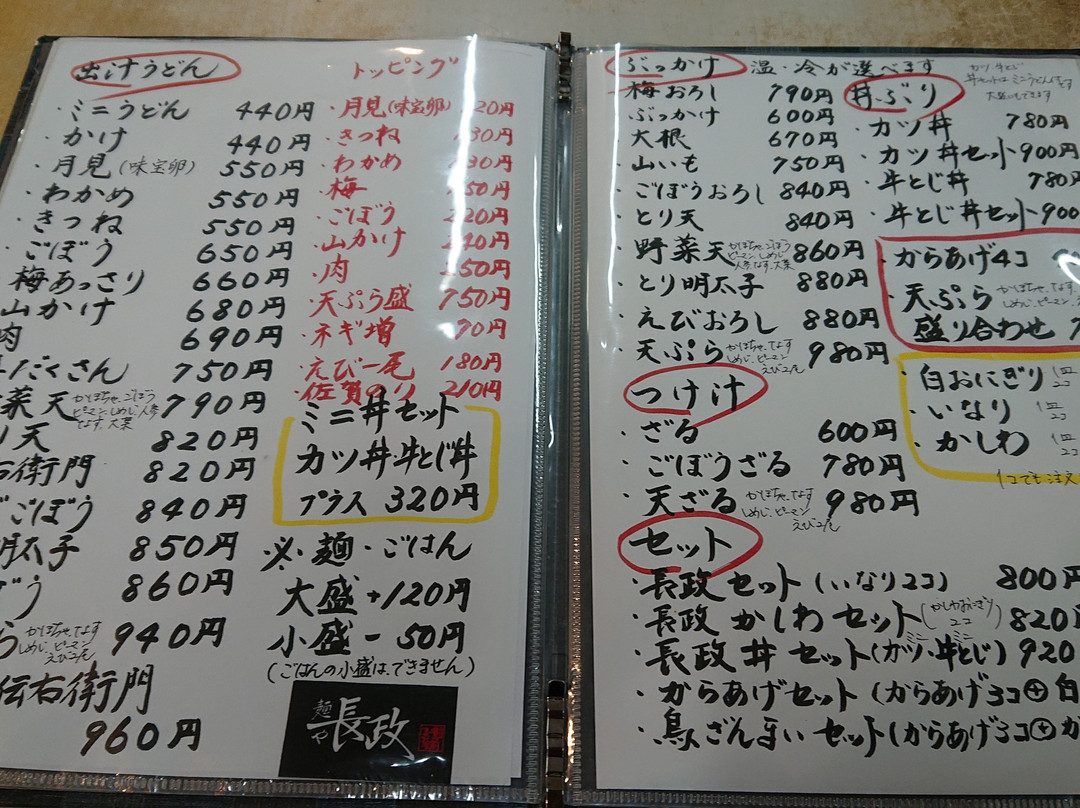 出汁うどん
・ミニうどん 440円
・かけ 440円
・月見(味宝卵) 550円
・わかめ 550円
・きつね 550円
・ごぼう 650円
梅あっさり 660円
山かけ 680円
肉 690円
だくさん 750円
菜天 かぼちゃ、ごぼう ピーマン、しめじ、人参 なす、大葉 790円
り天 820円
右衛門 820円
ごぼう 840円
明太子 850円
ぼう 860円
ら かぼちゃ、なす しめじ、ピーマン えび2本 940円
伝右衛門
960円
トッピング
・月見(味宝卵) 20円
・きつね 30円
・わかめ 30円
・梅 50円
・ごぼう 220円
・山かけ 240円
・肉 250円
・天ぷら盛 750円
・ネギ増 90円
・えび一尾 180円
・佐賀のり 210円
ミニ丼セット
カツ丼・牛とじ丼
プラス 320円
※麺・ごはん
大盛+120円
小盛-50円
(ごはんの小盛は、できません)
麺や 長政
ぶっかけ 温・冷が選べます
・梅おろし 790円
・ぶっかけ 600円
・大根 670円
・山いも 750円
・ごぼうおろし 840円
・とり天 840円
・野菜天 かぼちゃ、ごぼう ピーマン、しめじ 人参、なす、大葉 860円
・とり明太子 880円
・えびおろし 880円
・天ぷら かぼちゃ、なす しめじ、ピーマン えび2本 980円
つけ汁
・ざる 600円
・ごぼうざる 780円
・天ざる かぼちゃ、なす しめじ、ピーマン えび2本 980円
セット
・長政セット(いなり2コ) 800円
・長政かしわセット(かしわおにぎり 2コ) 820円
・長政丼セット(ミニカツ・ミニ牛とじ) 920
・からあげセット(からあげ3コ⊕白
・鳥ざんまいセット(からあげ3コ⊕か
カツ、牛とじ
丼セットは、ミニうどんを
丼ぶり
・カツ丼 780円
・カツ丼セット 900円
・牛とじ丼 780
・牛とじ丼セット 900
・からあげ4コ
・天ぷら かぼちゃ、なす しめじ、ピーマン
盛り合わせ 7
・白おにぎり 1皿 2コ
・いなり 1皿 2コ
・かしわ 1皿 2コ
1コでも注文